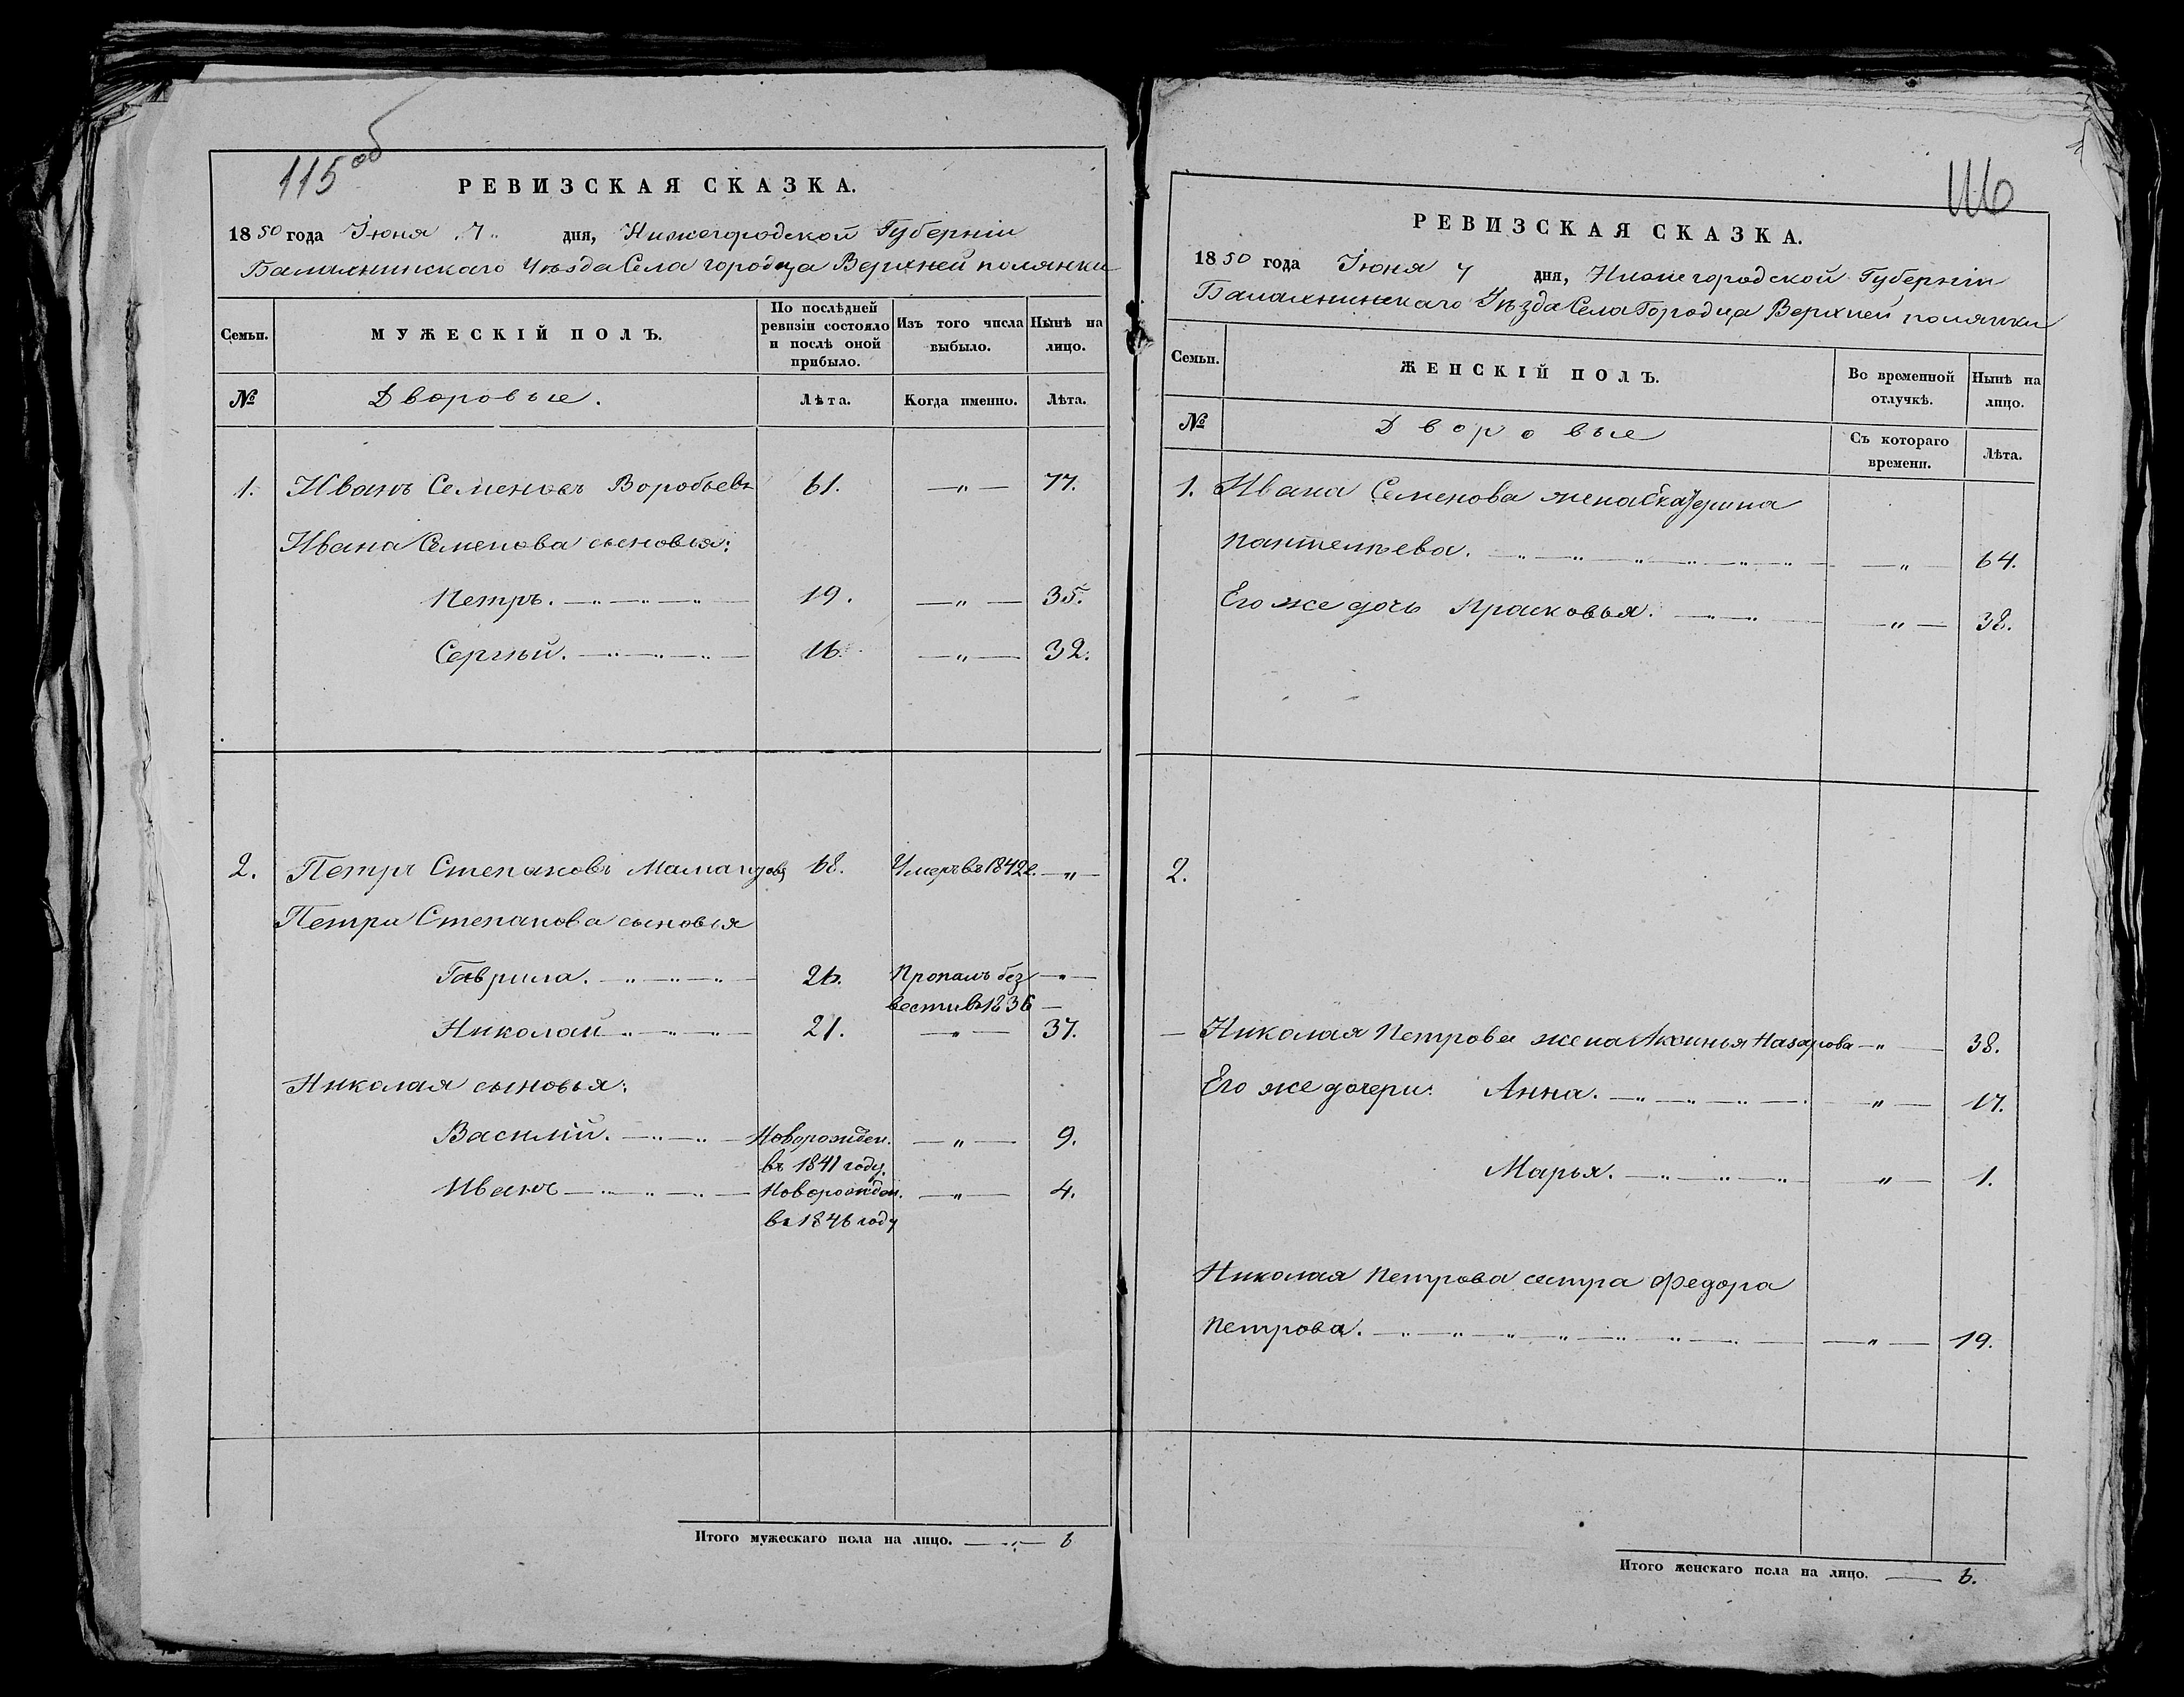 115 об
РЕВИЗСКАЯ СКАЗКА.
1850 года Іюня 7 дня, Нижегородской Губерніи
Балахнинскаго Уѣзда Села городца Верхней полянки
Семьи. МУЖЕСКІЙ ПОЛЪ. По послѣдней ревизіи состояло и послѣ оной прибыло. Изъ того числа выбыло. Нынѣ на лицо.
№ Дворовые. Лѣта. Когда именно. Лѣта.
1. Иванъ Семеновъ Воробьевъ 61. — " — 77.
Ивана Семенова сыновья:
Петръ. — " — " — " — 19. — " — 35.
Сергѣй. — " — " — " — 16. — " — 32.
2. Петръ Степановъ 68. Умеръ въ 1842 г. — " —
Петра Степанова сыновья
Гаврила. — " — " — " — 26. Пропалъ без — " —
вести въ 1836 —
Николай — " — " — " — 21. — " — 37.
Николая сыновья:
Василій. — " — " — Новорожден. — " — 9.
въ 1841 году.
Иванъ — " — " — " — Новорожден. — " — 4.
въ 1846 году
Итого мужескаго пола на лицо. — " — 6
116
РЕВИЗСКАЯ СКАЗКА.
1850 года Іюня 7 дня, Нижегородской Губерніи
Балахнинскаго Уѣзда Села Городца Верхней полянки
Семьи. ЖЕНСКІЙ ПОЛЪ. Во временной отлучкѣ. Нынѣ на лицо.
№ Дворовые Съ котораго времени. Лѣта.
1. Ивана Семенова жена Екатерина
Пантелѣева. — " — " — " — " — " — " — — " — 64.
Его же дочь Прасковья. — " — " — — " — 38.
2.
— Николая Петрова жена Аксинья Назарова — " — 38.
Его же дочери: Анна. — " — " — " — — " — 17.
Марья. — " — " — " — " — 1.
Николая Петрова сестра Федора
Петрова. — " — " — " — " — " — " — " — — " — 19.
Итого женскаго пола на лицо. — 6.